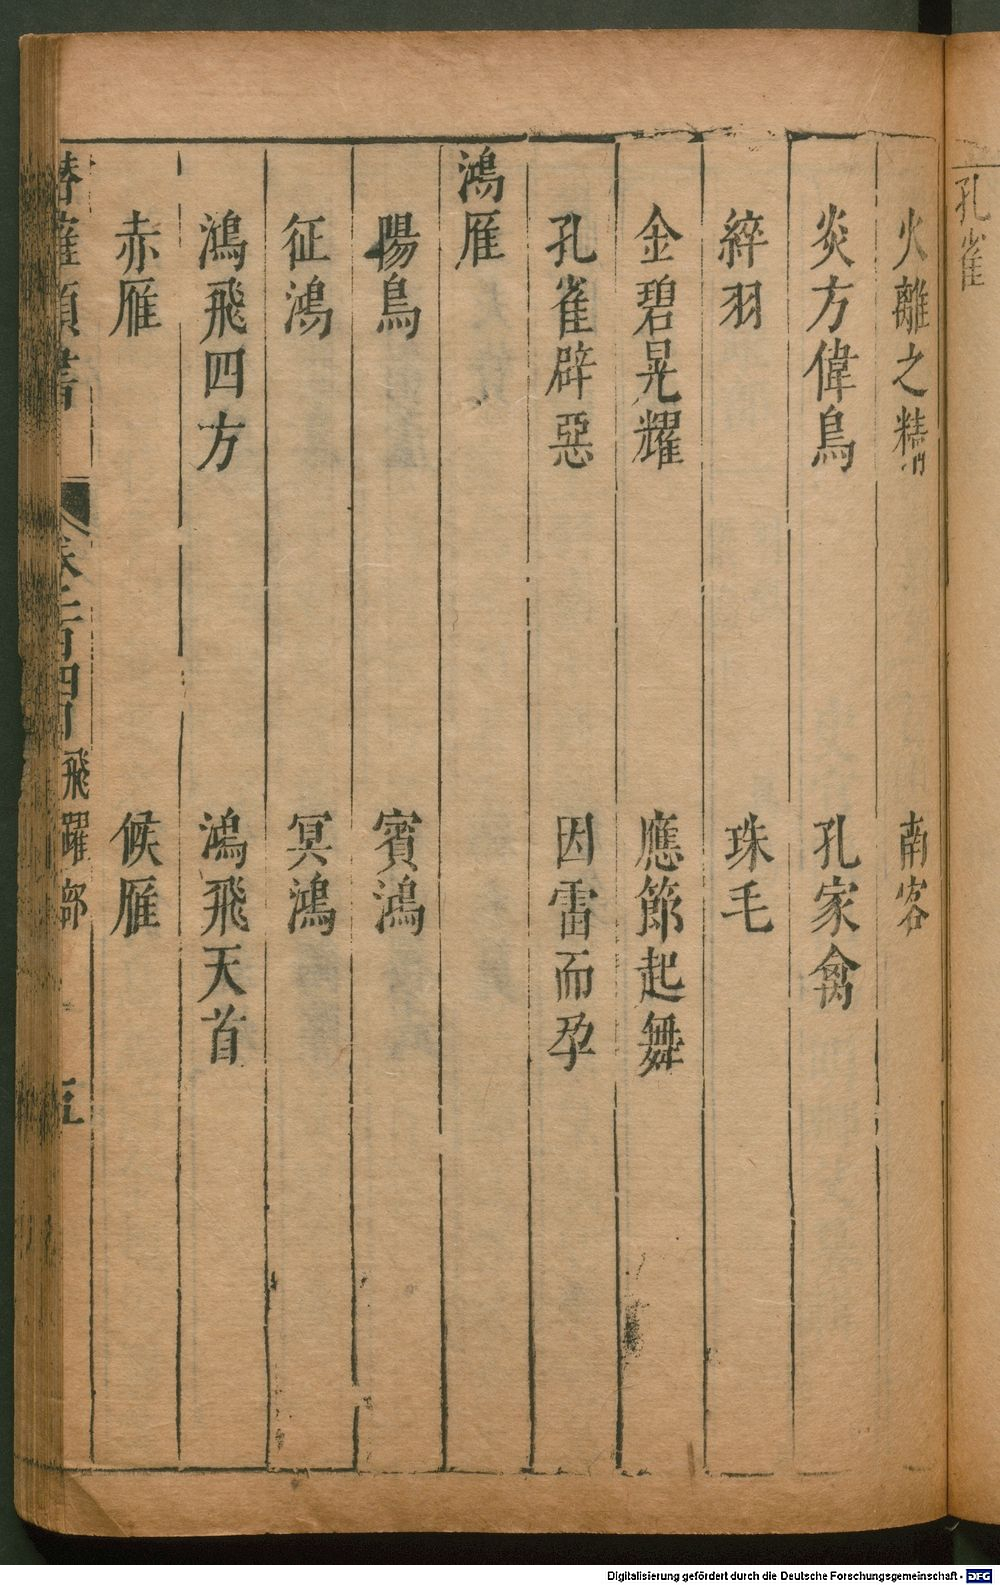 孔雀
火離之精 南客
炎方偉鳥 孔家禽
綷羽 珠毛
金碧晃耀 應節起舞
孔雀辟惡 因雷而孕
鴻雁
陽鳥 賓鴻
征鴻 冥鴻
鴻飛四方 鴻飛天首
赤雁 候雁
潛確類書 卷一百四 飛躍部 五
Digitalisierung gefördert durch die Deutsche Forschungsgemeinschaft - DFG